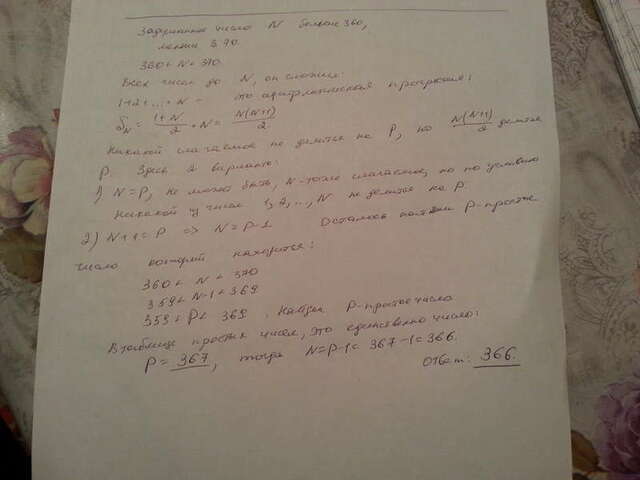 Задуманное число N больше 360,
меньше 370.
360 < N < 370
Всех чисел до N, он сложил:
1+2+...+N - это арифметическая прогрессия;
S_N = (1+N)/2 · N = N(N+1)/2
Никакой слагаемое не делится на P, но N(N+1)/2 делится
P. Здесь 2 варианта:
1) N=P, не может быть, N-тоже слагаемое, но по условию
никакой у чисел 1,2,..., N не делится на P.
2) N+1=P => N=P-1. Осталось найти P-простое
число который находится:
360 < N < 370
359 < N-1 < 369
359 < P < 369. Найдём P-простое число
В таблице простых чисел, это единственно число:
P=367, тогда N=P-1=367-1=366.
Ответ: 366.